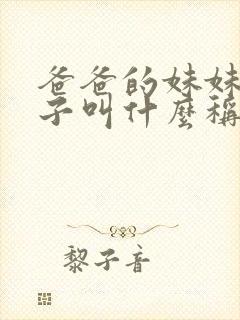 爸爸的妹妹
子叫什麼稱
黎子音